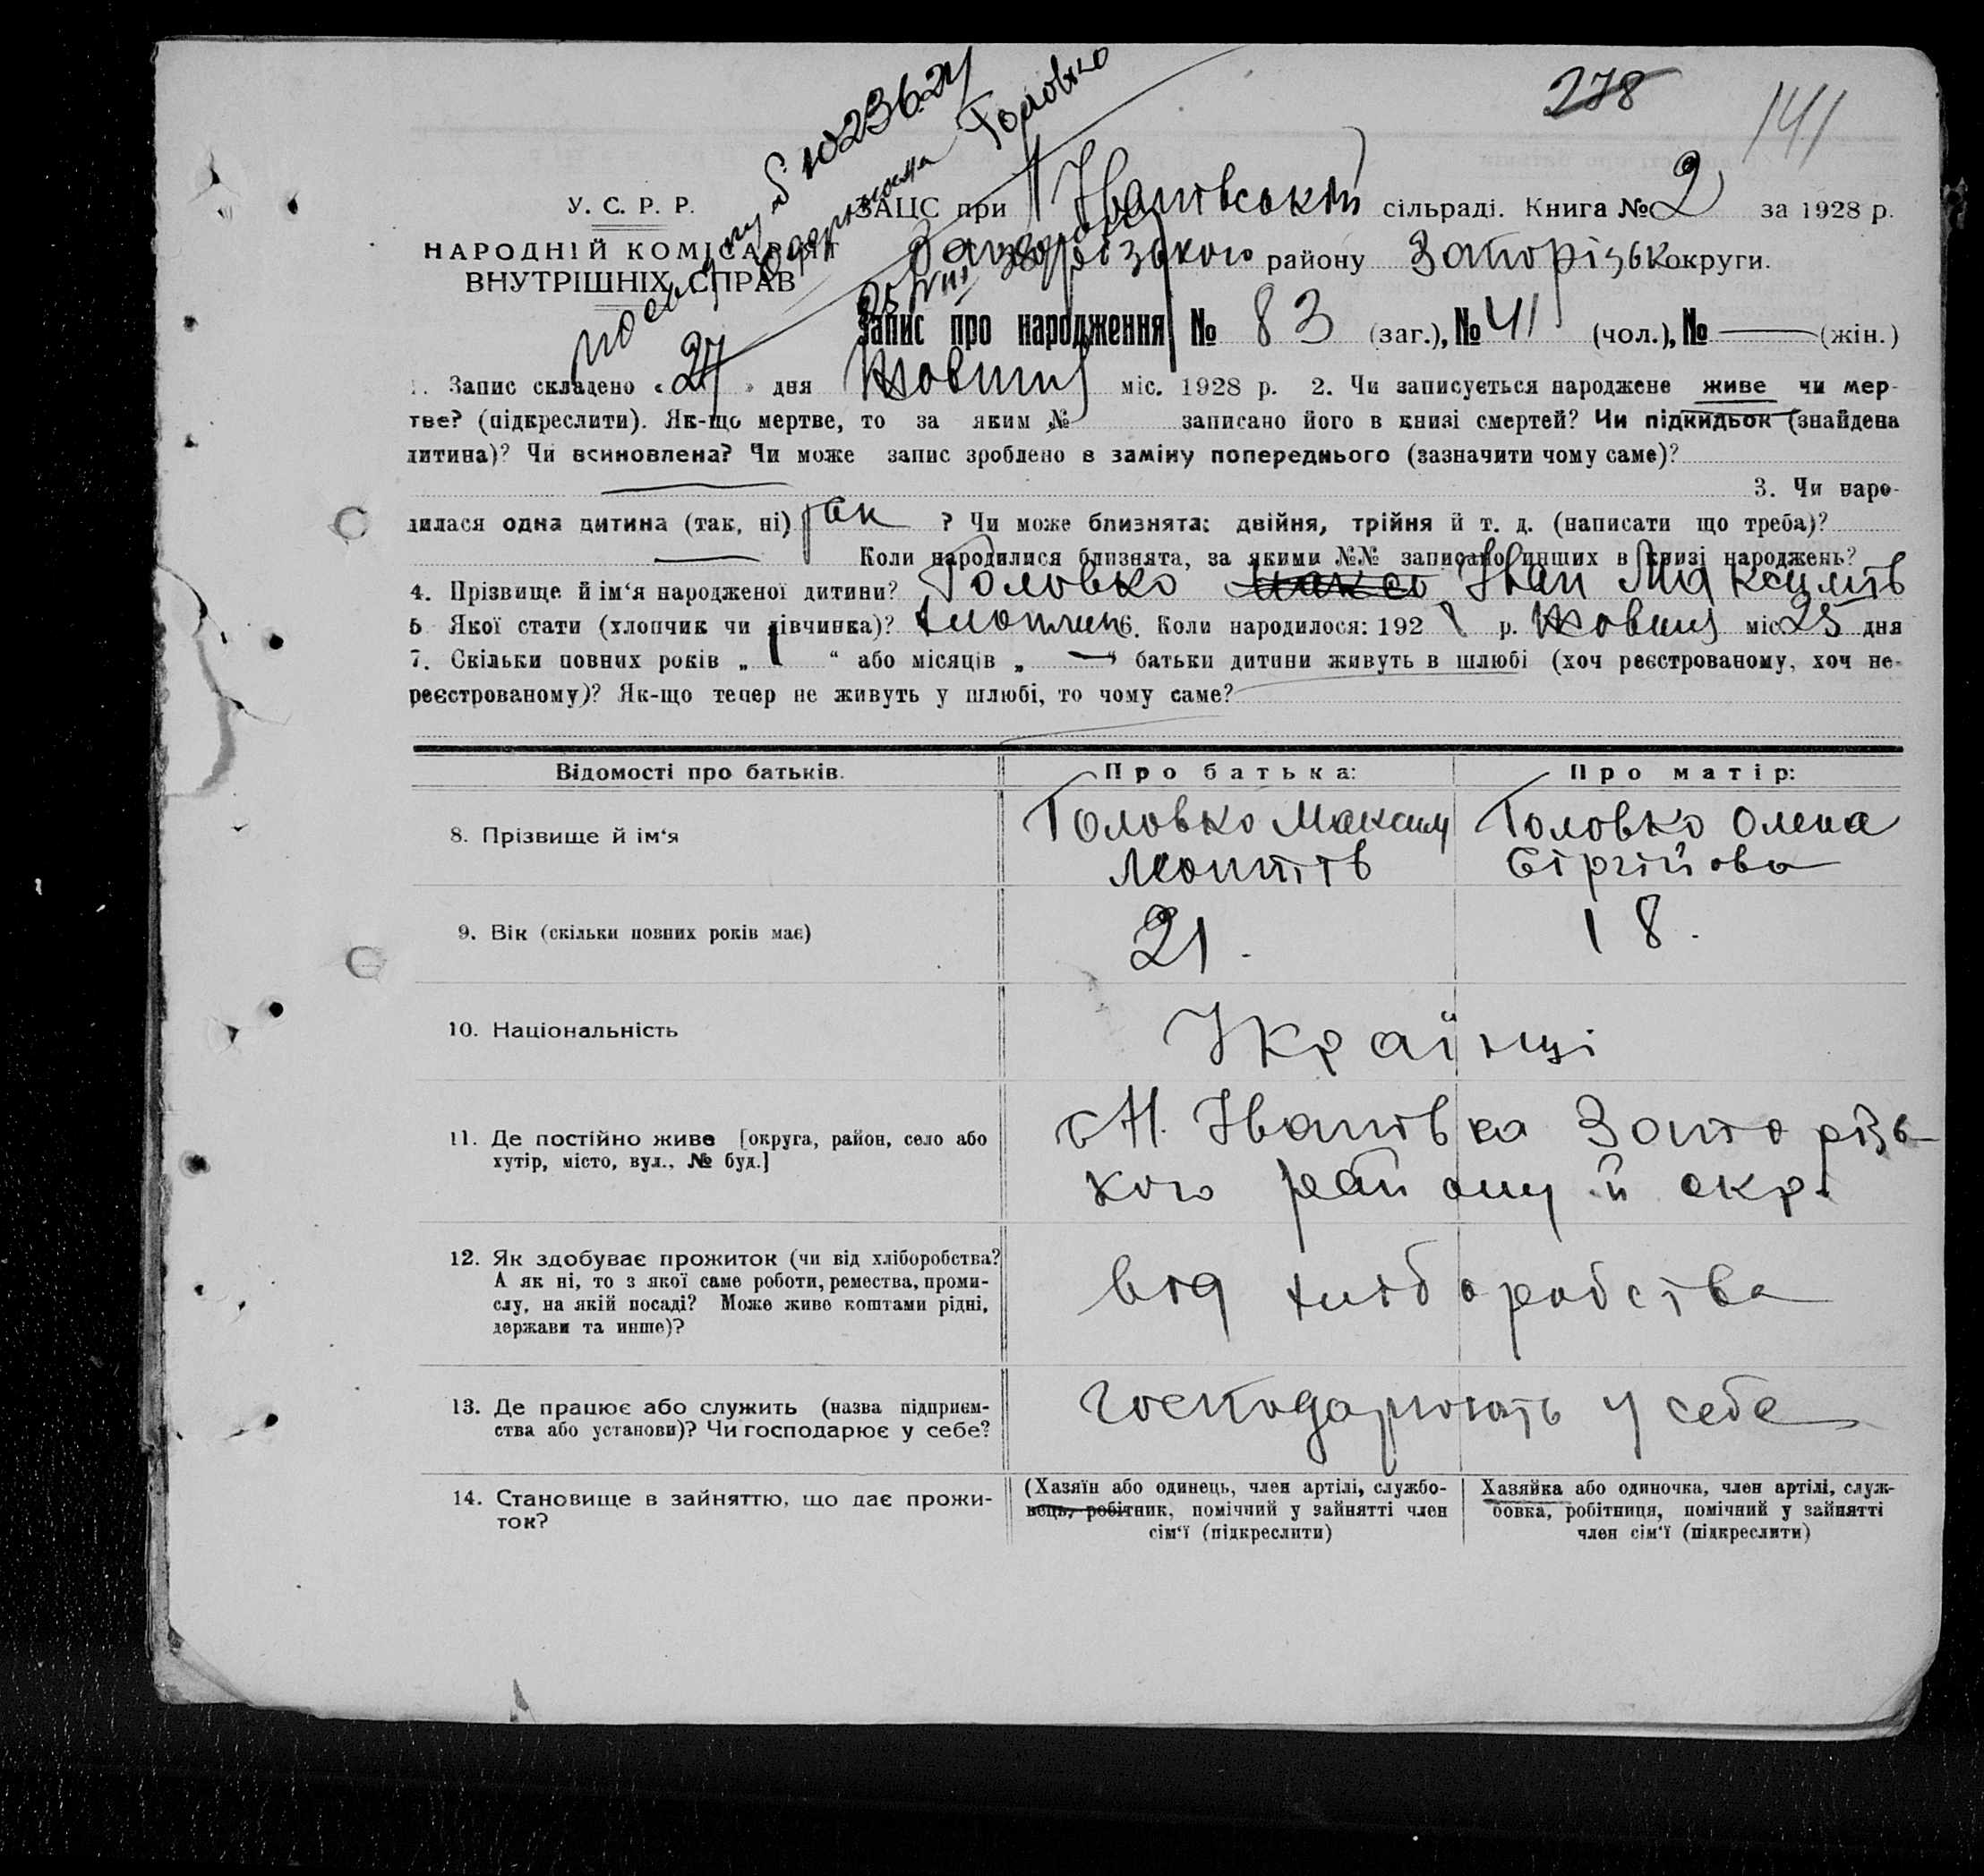 278
141
У. С. Р. Р.
НАРОДНІЙ КОМІСАРІЯТ
ВНУТРІШНІХ СПРАВ
ЗАЦС при Іванівській сільраді. Книга № 2 за 1928 р.
Запорізького району Запорізьк округи.
Запис про народження № 83 (заг.), № 41 (чол.), № — (жін.)
1. Запис складено «27» дня Жовтня міс. 1928 р. 2. Чи записується народжене живе чи мер-
тве? (підкреслити). Як-що мертве, то за яким № записано його в книзі смертей? Чи підкидьок (знайдена
дитина)? Чи всиновлена? Чи може запис зроблено в заміну попереднього (зазначити чому саме)?
— 3. Чи наро-
дилася одна дитина (так, ні) так ? Чи може близнята: двійня, трійня й т. д. (написати що треба)?
— Коли народилися близнята, за якими №№ записано инших в книзі народжень?
4. Прізвище й ім'я народженої дитини? Головко Іван Максимів
5 Якої стати (хлопчик чи дівчинка)? хлопчик 6. Коли народилося: 1928 р. Жовтня міс 25 дня
7. Скільки повних років „ 1 “ або місяців „ — “ батьки дитини живуть в шлюбі (хоч реєстрованому, хоч не-
реєстрованому)? Як-що тепер не живуть у шлюбі, то чому саме?
Відомості про батьків. Про батька: Про матір:
8. Прізвище й ім'я Головко Максим Головко Олена
Сіргійова
9. Вік (скільки повних років має) 21. 18.
10. Національність Українці
11. Де постійно живе [округа, район, село або
хутір, місто, вул., № буд.]
Іванівка Запорізь-
кого району й окр.
12. Як здобуває прожиток (чи від хліборобства?
А як ні, то з якої саме роботи, ремества, проми-
слу, на якій посаді? Може живе коштами рідні,
держави та инше)?
від хліборобства
13. Де працює або служить (назва підприєм-
ства або установи)? Чи господарює у себе?
господарюють у себе
14. Становище в зайняттю, що дає прожи-
ток?
(Хазяїн або одинець, член артілі, службо-
вець, робітник, помічний у зайнятті член
сім'ї (підкреслити)
Хазяйка або одиночка, член артілі, служ-
бовка, робітниця, помічний у зайнятті
член сім'ї (підкреслити)